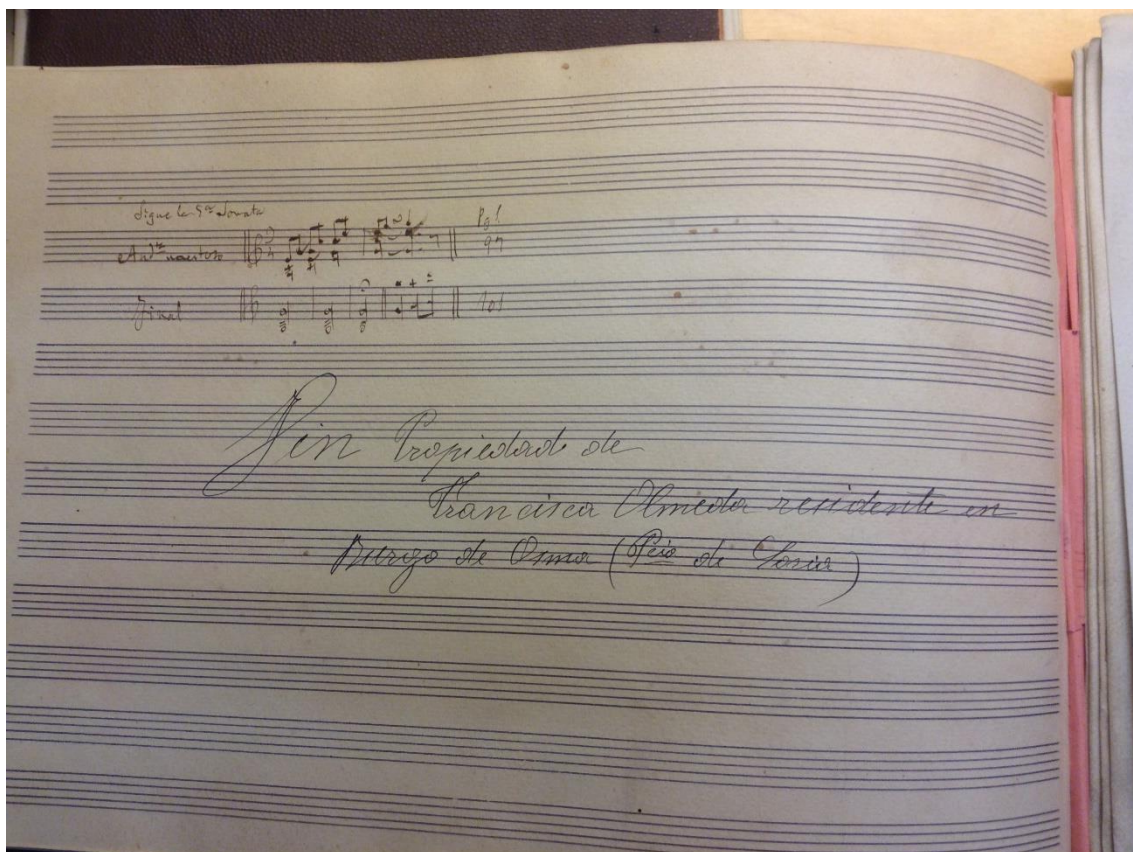 Sigue la 5ª Sonata
And.te maestoso
Pgl
97
Final
101
Fin Propiedad de
Francisca Olmeda residente en
Burgo de Osma (Pcia de Soria)